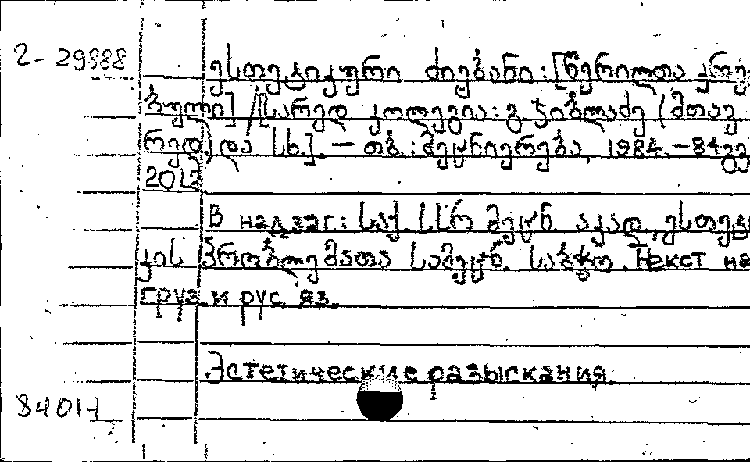 2-29888
ესთეტიკური ძიებანი: [წერილთა კრე
ბული] /[სარედ კოლეგია: გ. ჯიბლაძე (მთავ.
რედ) და სხ.]. — თბ.: მეცნიერება, 1984. - 84 გვ
2012
В надзаг.: საქ. სსრ მეცნ. აკად. ესთეტი
კის პრობლემათა სამეცნ. საბჭო. Текст на
груз и рус яз.
Эстетические разыскания.
8401